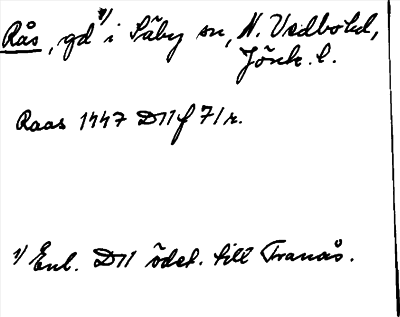 Rås, gd¹⁾ i Säby sn, N. Vedbohd,
Jönk. l.
Raas 1447 D11 f 71 r.
¹⁾ Enl. D11 ödel. till Tranås.